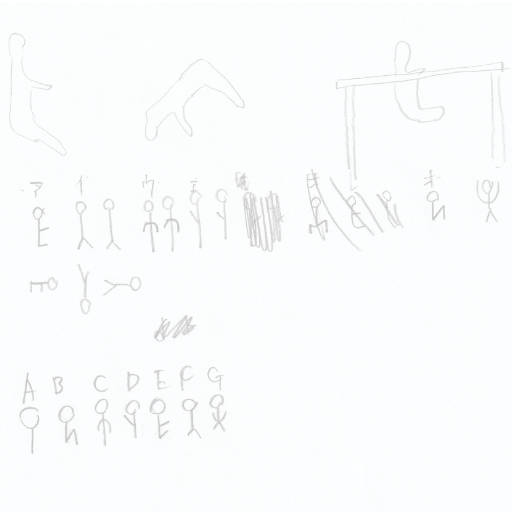 ア イ ウ エ オ
A B C D E F G